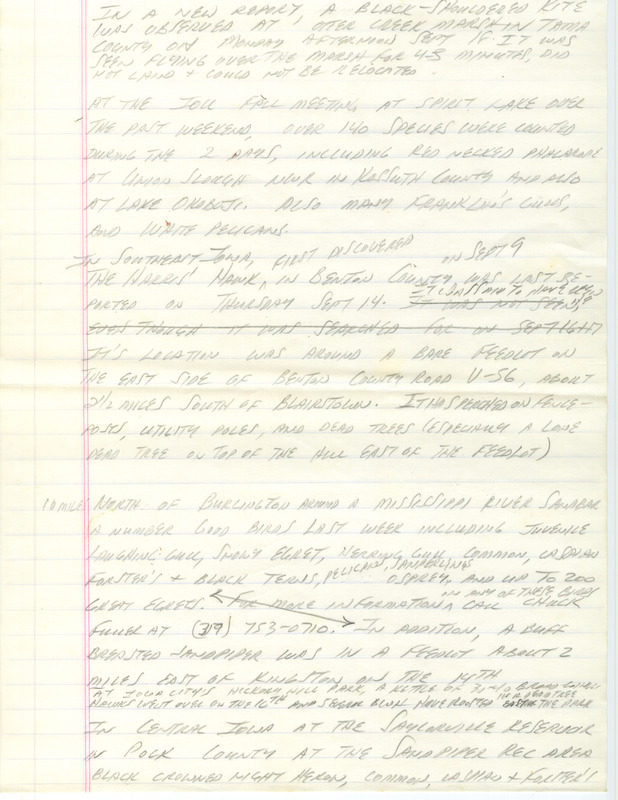 IN A NEW REPORT, A BLACK-SHOULDERED KITE
WAS OBSERVED AT OTTER CREEK MARSH IN TAMA
COUNTY ON MONDAY AFTERNOON SEPT 18. IT WAS
SEEN FLYING OVER THE MARSH FOR 4-5 MINUTES, DID
NOT LAND + COULD NOT BE RELOCATED.
AT THE IOU FALL MEETING AT SPIRIT LAKE OVER
THE PAST WEEKEND, OVER 140 SPECIES WERE COUNTED
DURING THE 2 DAYS, INCLUDING RED NECKED PHALAROPE
AT UNION SLOUGH NWR IN KOSSUTH COUNTY AND ALSO
AT LAKE OKOBOJI. ALSO MANY FRANKLIN'S GULLS,
AND WHITE PELICANS.
IN SOUTHEAST IOWA, FIRST DISCOVERED ON SEPT 9
THE HARRIS' HAWK, IN BENTON COUNTY WAS LAST RE-
PORTED ON THURSDAY SEPT 14. IT WAS NOT SEEN,
EVEN THOUGH IT WAS SEARCHED FOR ON SEPT 16+17
IT'S LOCATION WAS AROUND A BARE FEEDLOT ON
THE EAST SIDE OF BENTON COUNTY ROAD V-56, ABOUT
2 1/2 MILES SOUTH OF BLAIRSTOWN. IT HAS PERCHED ON FENCE-
POSTS, UTILITY POLES, AND DEAD TREES (ESPECIALLY A LONE
DEAD TREE ON TOP OF THE HILL EAST OF THE FEEDLOT)
10 MILES NORTH OF BURLINGTON AROUND A MISSISSIPPI RIVER SANDBAR
A NUMBER GOOD BIRDS LAST WEEK INCLUDING JUVENILE
LAUGHING GULL, SNOWY EGRET, HERRING GULL, COMMON, CASPIAN
FORSTER'S + BLACK TERNS, PELICANS, SANDERLINGS OSPREY, AND UP TO 200
GREAT EGRETS. FOR MORE INFORMATION ON ANY OF THESE BIRDS, CALL CHUCK
FULLER AT (319) 753-0710. IN ADDITION, A BUFF
BREASTED SANDPIPER WAS IN A FEEDLOT ABOUT 2
MILES EAST OF KINGSTON ON THE 14TH
AT IOWA CITY'S HICKORY HILL PARK, A KETTLE OF BROAD WINGED
HAWKS WENT OVER ON THE 16TH AND SEVERAL HAVE ROOSTED IN A DEAD TREE THE PARK
IN CENTRAL IOWA AT THE SAYLORVILLE RESERVOIR
IN POLK COUNTY AT THE SANDPIPER REC AREA
BLACK CROWNED NIGHT HERON, COMMON, CASPIAN + FORSTER'S